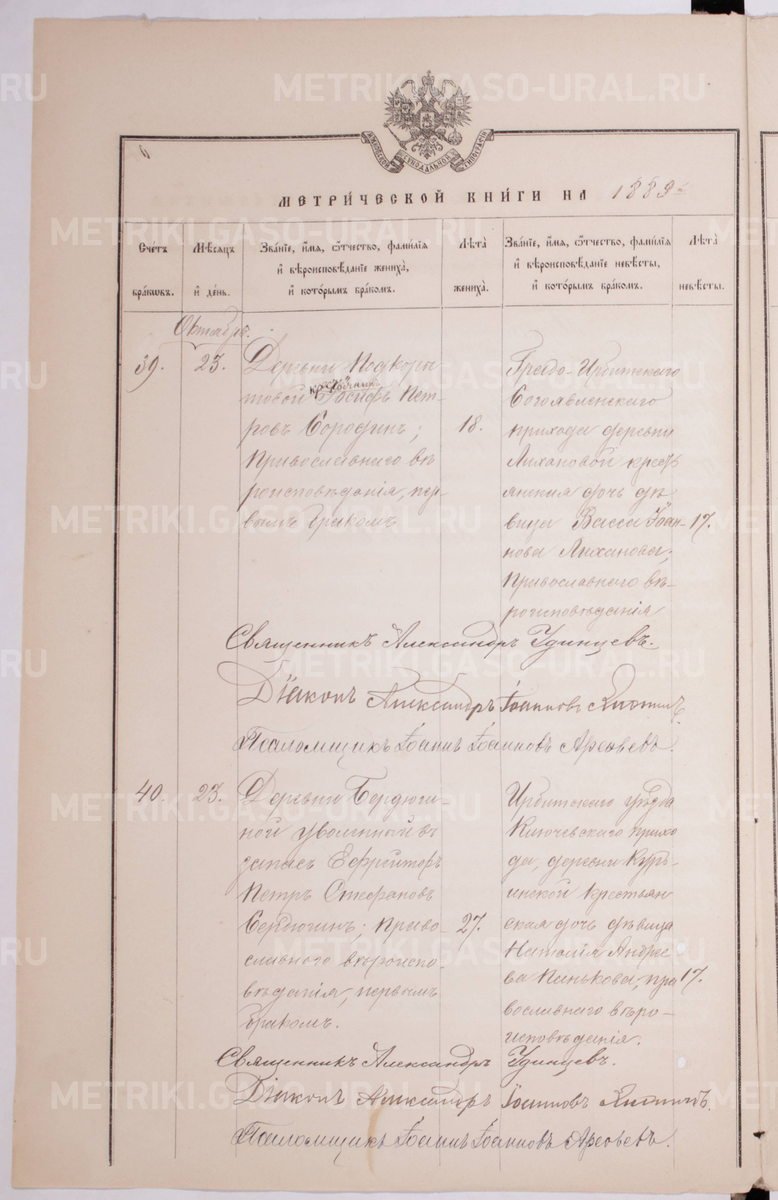 МЕТРИ́ЧЕСКОЙ КНИ́ГИ НА 1889
Счетъ бра́ковъ.
Мѣсяцъ и́ де́нь.
Зва́нїе, и́мя, ѻ҆́тчество, фами́лїя и҆ вѣроисповѣ́данїе жениха̀, и҆ кото́рымъ бра́комъ.
Лѣта̀ жениха̀.
Зва́нїе, и́мя, ѻ҆́тчество, фами́лїя и҆ вѣроисповѣ́данїе невѣ́сты, и҆ кото́рымъ бра́комъ.
Лѣта̀ невѣ́сты.
Октябрь.
39.
23.
Деревни Подкоры
товой Іосифъ Пет
ровъ Бородинъ;
Православнаго вѣ
роисповѣданія, пер
вымъ бракомъ
18.
Градо-Ирбитскаго
Богоявленскаго
прихода деревни
Лихановой кресть
янская дочь дѣ
вица Васса Іоан-
нова Лиханова;
Православнаго вѣ-
роисповѣданія
17.
Священникъ Александръ Удинцевъ.
Діаконъ Александръ Іоанновъ
Псаломщикъ Іоаннъ Іоанновъ Арефьевъ.
40.
23.
Деревни Бердюги
ной уволенный въ
запасъ Ефрейторъ
Петръ Стефановъ
Бердюгинъ; Право-
славнаго вѣроиспо-
вѣданія, первымъ
бракомъ.
27.
Ирбитскаго уѣзда
Ключевскаго прихо
да, деревни Курь-
инской крестьян
ская дочь дѣвица
Наталія Андрее
ва Панькова, пра
вославнаго вѣро-
исповѣданія.
17.
Священникъ Александръ Удинцевъ.
Діаконъ Александръ Іоанновъ
Псаломщикъ Іоаннъ Іоанновъ Арефьевъ.
METRIKI.GASO-URAL.RU